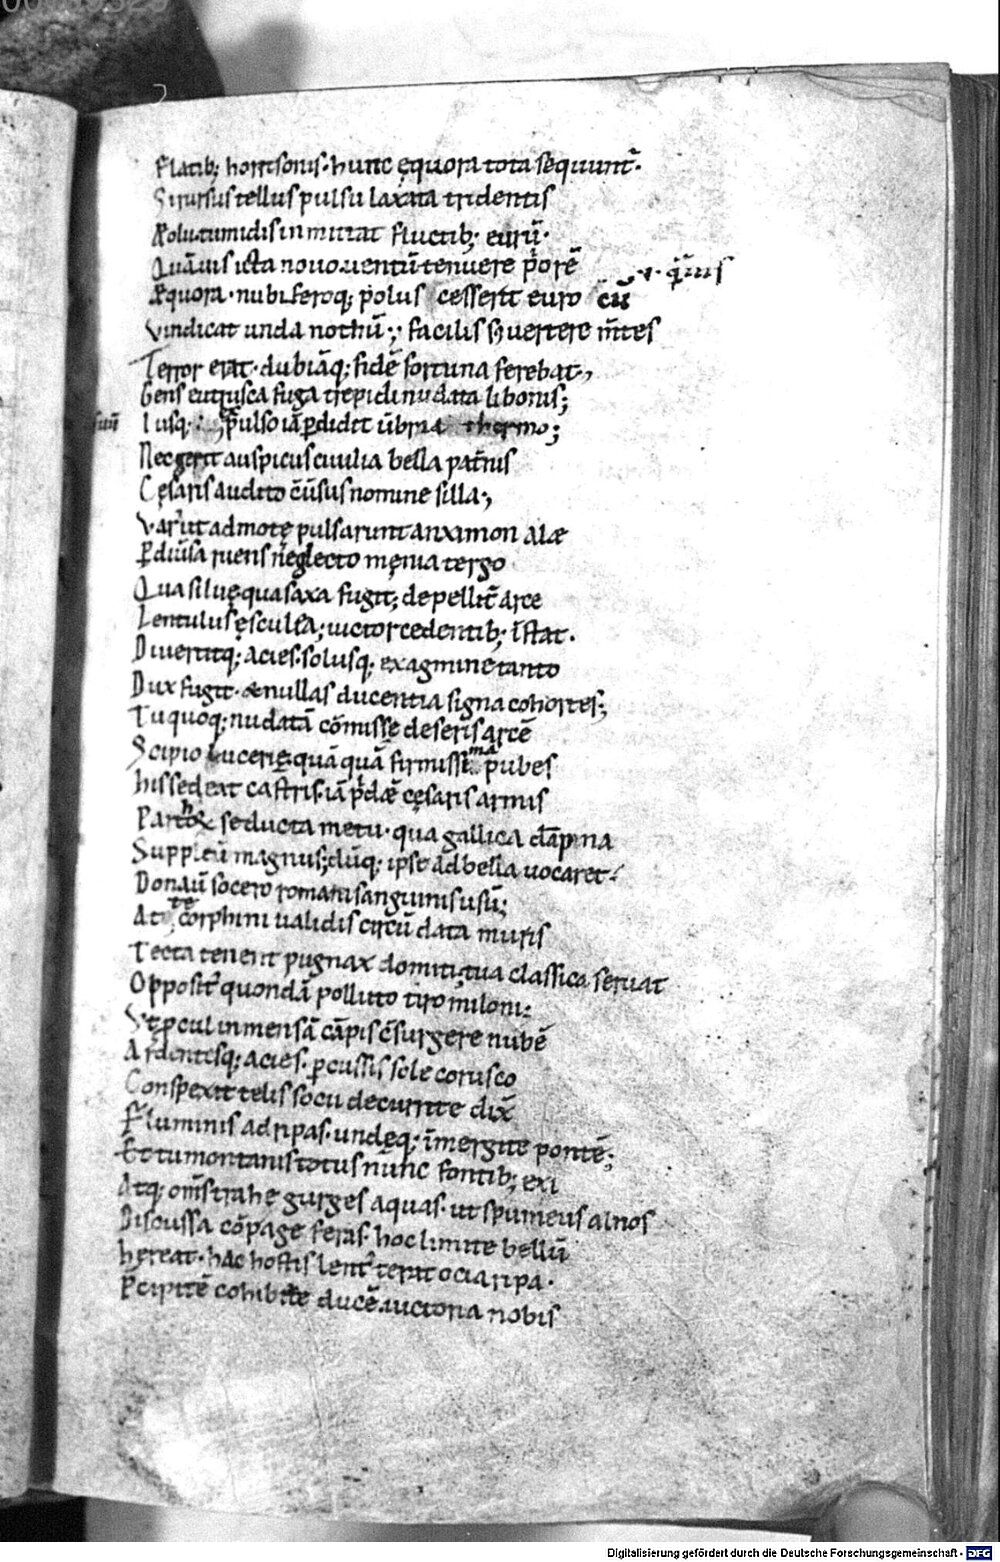 Flatib; horrisonis·hunc ęquora tota sequunt̄·
Si rursus tellus pulsu laxata tridentis
Æoli tumidis inmittat fluctib; eurū·
Quāuis icta nouo uentū tenuere p̄orē
·v· q̄̄uis
Æquora·nubiferoq; p̄olus cesserit euro cū
Vindicat unda nothū·; facilis s; uertere m̄tes
Terror erat·dubiāq; fidē fortuna ferebat·,
Gens eutrusca fuga trepidi nudata libonis;
Iusq; pulso iā p̱didit ūbria thermo;
suū
Nec gerit auspiciis ciuilia bella pat̄nis
Cęsaris audito c̄ūsus nomine silla·,
Var' ut admotę pulsarunt anximon alæ
P̱ diūsa ruens neglecto męnia tergo
Qua siluę qua saxa fugit; depellit̄ arce
Lentulus ęsculea; uictor cedentib; īstat·
Diuertitq; acies·solusq; ex agmine tanto
Dux fugit·& nullas ducentia signa cohortes;
Tu quoq; nudatā cōmisse deseris arcē
Scipio lucerię quā quā firmissima pubes
his sedeat castris·iā p̄dē cęsaris armis
Parthoꝝ seducta metu·qua gallica dāpna
Suppleū magnus; dūq; ipse ad bella uocaret·
Donaū socero romani sanguinis usū;
At te corphini ualidis circū data muris
Tecta tenent pugnax domiti; tua classica seruat
Opposit' quondā polluto tiro miloni:
Vt p̱cul inmensā cāpis c̄surgere nubē
Ardentesq; acies·p̱cussis sole corusco
Conspexit telis socii decurrite dix̄
Fluminis ad ripas·undęq; īmergite pontē;
Et tu montanis totus nunc fontib; exi
Atq; om̄s trahe gurges aquas·ut spumeus alnos
Discussa cōpage feras·hoc limite bellū
hęreat·hac hostis lent' terat ocia ripa·
P̄cipitē cohibete ducē uictoria nobis
Digitalisierung gefördert durch die Deutsche Forschungsgemeinschaft - DFG